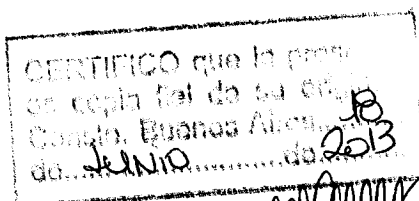 CERTIFICO que la prese
es copia fiel de su orig
Conste. Buenos Aires,...... 18
de...JUNIO................de 2013